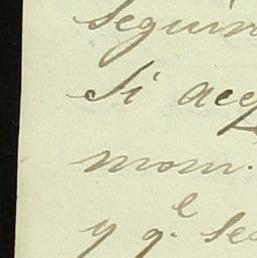 seguir
Si ace
mom.
y q.e se